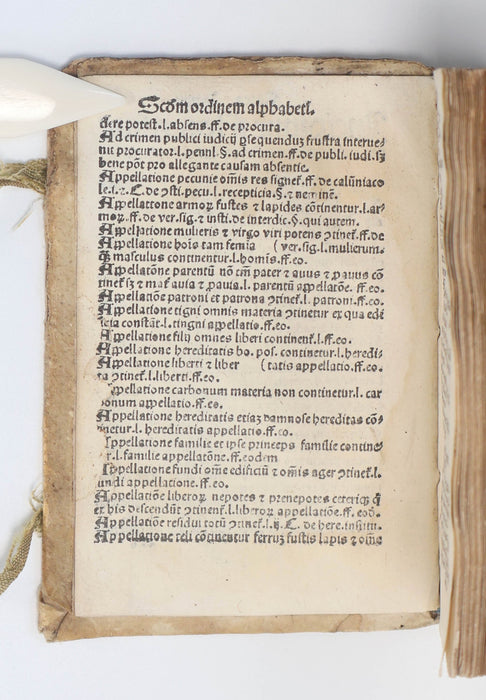 Scḋm ordinem alphabeti.
dere potest.l.absens.ff.de procura.
Ad crimen publici iudicij ꝓsequenduʒ frustra interue⸗
nit procurator.l.penul.§.ad crimen.ff.de publi.iudi.sʒ
bene põt pro allegante causam absentie.
Appellatione pecunie om̃is res signet̃.ff.de calũniato
le.i.⁊.C.de ꝯsti.pecu.l.recepticia.§.⁊ neminẽ.
Appellatione armoꝝ fustes ⁊ lapides cõtinentur.l.ar⸗
moꝝ.ff.de ver.sig.⁊ insti.de interdic.§.qui autem.
Appellatione mulieris ⁊ virgo viri potens ꝯtinet̃.ff.de
Appellatione hoĩs tam femĩa (ver.sig.l.mulierum.
ꝙ̃ masculus continentur.l.homis.ff.eo.
Appellatiõne parentũ nõ tm̃ pater ⁊ auus ⁊ ꝓauus cõ
tinet̃ sʒ ⁊ mat̃ auia ⁊ ꝓauia.l.parentũ appellatõe.ff.eo.
Appellatiõe patroni et patrona ꝯtinet̃.l.patroni.ff.eo.
Appellatione tigni omnis materia ꝯtinetur ex qua edi
ficia constãt.l.tingni appellatio.ff.eo.
Appellatione filij omnes liberi continent̃.l.ff.eo.
Appellatione hereditatis bo.pos.continetur.l.heredi⸗
Appellatione liberti ⁊ liber (tatis appellatio.ff.eo.
ta ꝯtinet̃.l.liberti.ff.eo.
Appellatione carbonum materia non continetur.l.car
bonum appellatio.ff.eo.
Appellatione hereditatis etiaʒ damnose hereditas cõ⸗
tinetur.l.hereditatis appellatio.ff.eo.
Appellatione familie et ipse princeps familie contine⸗
t̃.l.familie appellatõne.ff.eodem
Appellatione fundi om̃e edificiũ ⁊ om̃is ager ꝯtinet̃.l.
fundi appellatione.ff.eo.
Appellatiõe liberoꝝ nepotes ⁊ prenepotes ceteriqꝫ q̃
ex his descendũt ꝯtinent̃.l.liberoꝝ appellatiõe.ff.eod.
Appellatiõe residui totũ ꝯtinet̃.l.ij.C.de here.institu.
Appellatione teli cõtinentur ferruʒ fustis lapis ⁊ om̃e